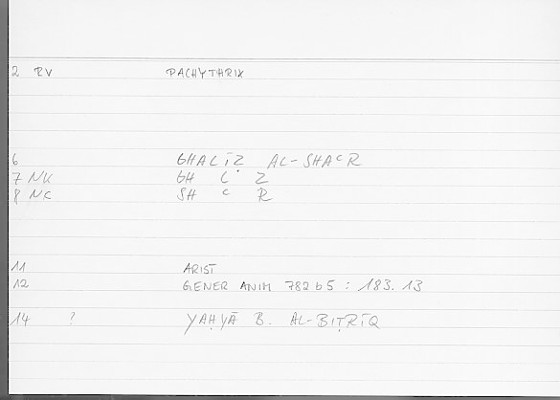 2 RV PACHYTHRIX
6 GHALĪẒ AL-SHAᶜR
7 NK GH L Ẓ
8 NK SH ᶜ R
11 ARIST
12 GENER ANIM 782 b5 : 183.13
14 ? YAḤYĀ B. AL-BIṬRĪQ